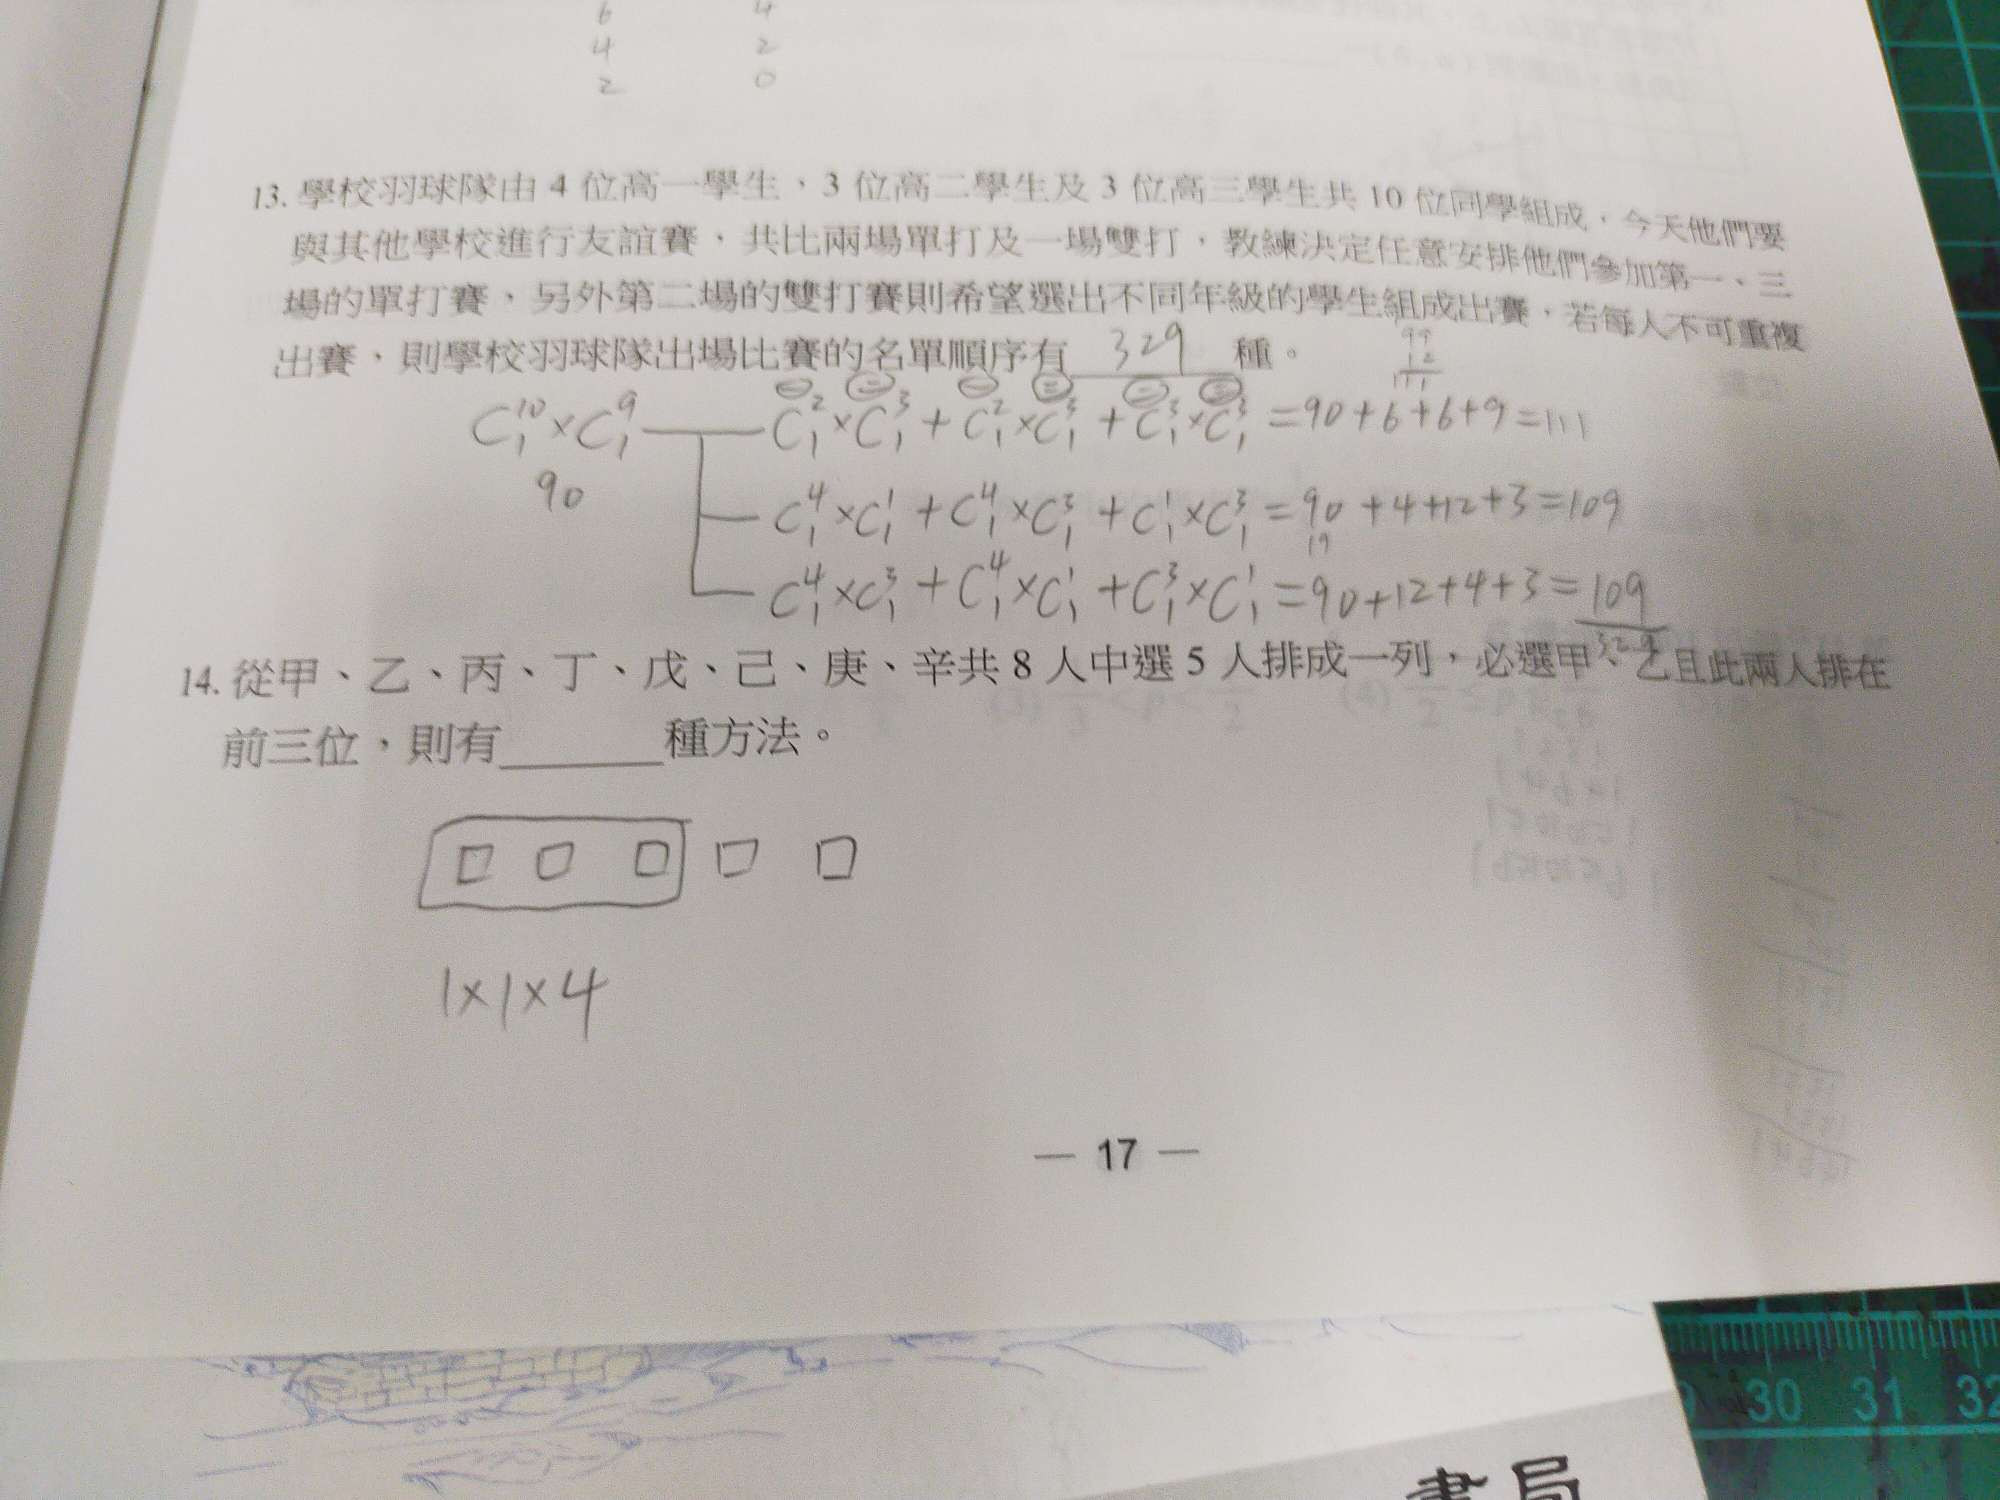 6 4
4 2
2 0
13. 學校羽球隊由 4 位高一學生、3 位高二學生及 3 位高三學生共 10 位同學組成,今天他們要
與其他學校進行友誼賽,共比兩場單打及一場雙打,教練決定任意安排他們參加第一、三
場的單打賽,另外第二場的雙打賽則希望選出不同年級的學生組成出賽,若每人不可重複
出賽,則學校羽球隊出場比賽的名單順序有 329 種。
99
12
111
C¹⁰₁×C⁹₁ C²₁×C³₁+C²₁×C³₁+C³₁×C³₁=90+6+6+9=111
90
C⁴₁×C¹₁+C⁴₁×C³₁+C¹₁×C³₁=90+4+12+3=109
19
C⁴₁×C³₁+C⁴₁×C¹₁+C³₁×C¹₁=90+12+4+3=109
329
14. 從甲、乙、丙、丁、戊、己、庚、辛共 8 人中選 5 人排成一列,必選甲、乙且此兩人排在
前三位,則有 種方法。
1×1×4
— 17 —
30 31 32
書局